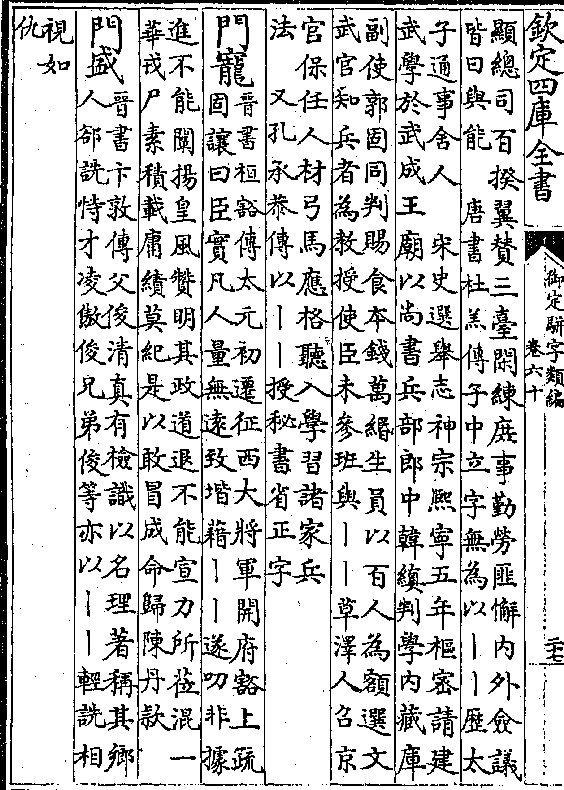 欽定四庫全書
御定駢字類編
卷六十
顯總司百揆翼贊三臺閑練庶事勤勞匪懈內外僉議
皆曰與能　唐書杜羔傳子中立字無為以丨丨歷太
子通事舍人　宋史選舉志神宗熙寧五年樞密請建
武學於武成王廟以尚書兵部郎中韓縝判學內藏庫
副使郭固同判賜食本錢萬緡生員以百人為額選文
武官知兵者為教授使臣未參班與丨丨草澤人召京
官保任人材弓馬應格聽入學習諸家兵
法　又孔承恭傳以丨丨授秘書省正字
門寵
晉書桓豁傳太元初遷征西大將軍開府豁上疏
固讓曰臣實凡人量無遠致堦藉丨丨遂叨非據
進不能闡揚皇風贊明其政道退不能宣力所莅混一
華戎尸素積載庸績莫紀是以敢冒成命歸陳丹款
門盛
晉書卞敦傳父俊清真有檢識以名理著稱其鄉
人郤詵恃才凌傲俊兄弟俊等亦以丨丨輕詵相
視如
仇